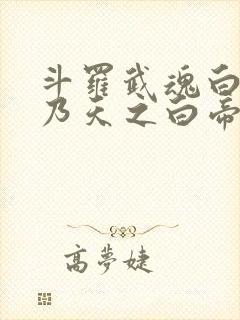 斗羅武魂白
乃天之白帝
高夢婕